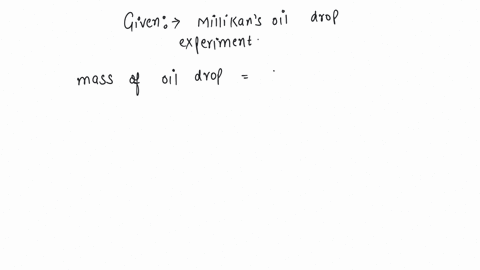 Given:→ Millikan's oil drop
experiment.
mass of oil drop =